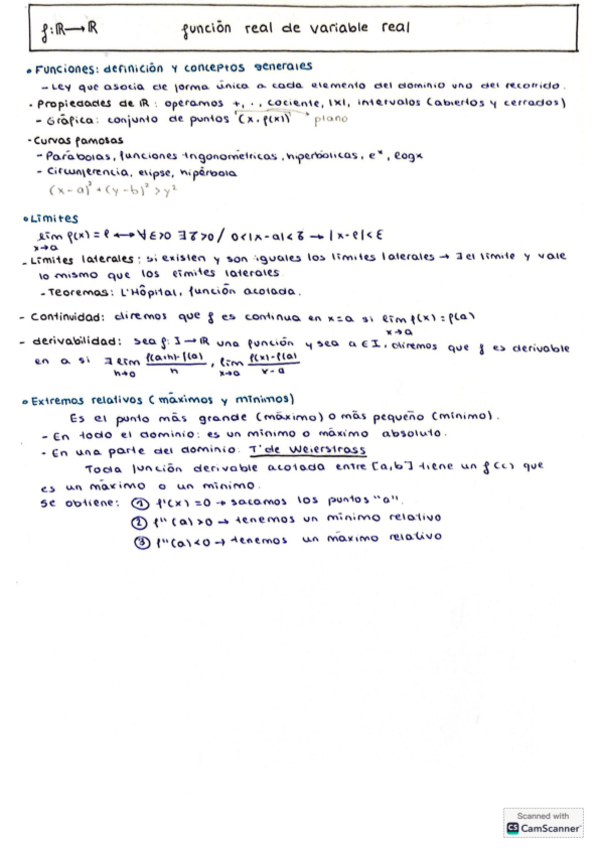 f: ℝ → ℝ función real de variable real
• Funciones: definición y conceptos generales
- Ley que asocia de forma única a cada elemento del dominio uno del recorrido.
- Propiedades de ℝ: operamos +, ·, cociente, |x|, intervalos (abiertos y cerrados)
- Gráfica: conjunto de puntos (x, f(x)) plano
- Curvas famosas
- Parábolas, funciones trigonométricas, hiperbólicas, eˣ, logx
- Circunferencia, elipse, hipérbola
(x-a)² + (y-b)² > y²
• Límites
lim f(x) = l ⟷ ∀ε>0 ∃δ>0 / 0<|x-a|<δ → |x-l|<ε
x→a
- Límites laterales: si existen y son iguales los límites laterales → ∃ el límite y vale
lo mismo que los límites laterales
- Teoremas: L'Hôpital, función acotada.
- Continuidad: diremos que f es continua en x=a si lim f(x) = f(a)
x→a
- derivabilidad: sea f: I → ℝ una función y sea a ∈ I, diremos que f es derivable
en a si ∃ lim f(a+h)-f(a) / h , lim f(x)-f(a) / x-a
h→0 x→a
• Extremos relativos (máximos y mínimos)
Es el punto más grande (máximo) o más pequeño (mínimo).
- En todo el dominio: es un mínimo o máximo absoluto.
- En una parte del dominio. T' de Weierstrass
Toda función derivable acotada entre [a,b] tiene un f(c) que
es un máximo o un mínimo.
Se obtiene: ① f'(x) = 0 → sacamos los puntos "a".
② f''(a) > 0 → tenemos un mínimo relativo
③ f''(a) < 0 → tenemos un máximo relativo
Scanned with
CS CamScanner